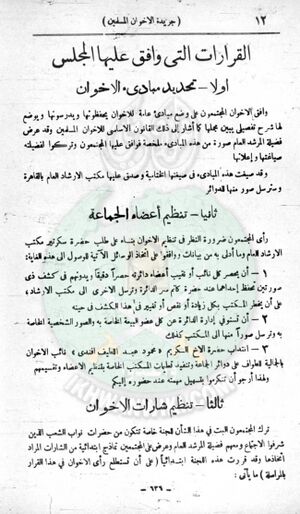 ١٢
( جريدة الاخوان المسلمين )
القرارات التي وافق عليها المجلس
اولا — تحديد مبادىء الاخوان
وافق الاخوان المجتمعون على وضع مبادئ عامة للاخوان يحفظونها ويدرسونها ويوضع
لها شرح تفصيلي يبين مجملها كما أشار إلى ذلك القانون الاساسى للاخوان المسلمين وقد عرض
فضيلة المرشد العام صورة من هذه المبادىء ملخصة فوافق عليها المجتمعون وتركوا لفضيلته
صياغتها وإعلانها
وقد صيغت هذه المبادىء في صيغتها الختامية وصدق عليها مكتب الارشاد العام بالقاهرة
وسترسل صور منها للدوائر
ثانيا — تنظيم أعضاء الجماعة
رأى المجتمعون ضرورة النظر فى تنظيم الاخوان بناء على طلب حضرة سكرتير مكتب
الارشاد العام وما أدلى به من بيانات ووافقوا على اتخاذ الوسائل الآتية للوصول الى هذه الغاية:
١ — أن يحصر كل نائب أو نقيب أعضاء دائرته حصراً دقيقاً ويدونهم فى كشف ذى
صورتين تحفظ إحداهما عنده كاتم سر الدائرة وترسل الاخرى الى مكتب الارشاد،
على أن يخطر المكتب بكل زيادة أو نقص أو تغيير فى هذا الكشف فى حينه
٢ — أن تستوفى إدارة الدائرة عن كل عضو البيعة الخاصة به والصور الشخصية الخاصة
به وترسل صوراً منها الى المكتب كذلك
٣ — انتداب حضرة الاخ الكريم محمود عبد اللطيف افندى نائب الاخوان
بالجالية للطواف على دوائر الجماعة وتنفيذ تعليمات المكتب الخاصة بتنظيم الاعضاء وتقسيمهم
ولهذا أرجو أن تتكرموا بتسهيل مهمته عند حضوره إليكم
ثالثا — تنظيم شارات الاخوان
ترك المجتمعون البت في هذا الشأن للجنة خاصة تتكون من حضرات نواب الشعب الذين
شرفوا الاجتماع ومعهم فضيلة المرشد العام وعرض على المجتمعين نماذج ابتدائية من الشارات المراد
اتخاذها وقد قررت هذه اللجنة ابتدائياً ( على أن تستطلع رأى الاخوان فى هذا القرار
بالمراسلة ) ما يأتى :
— ٦٣٩ —